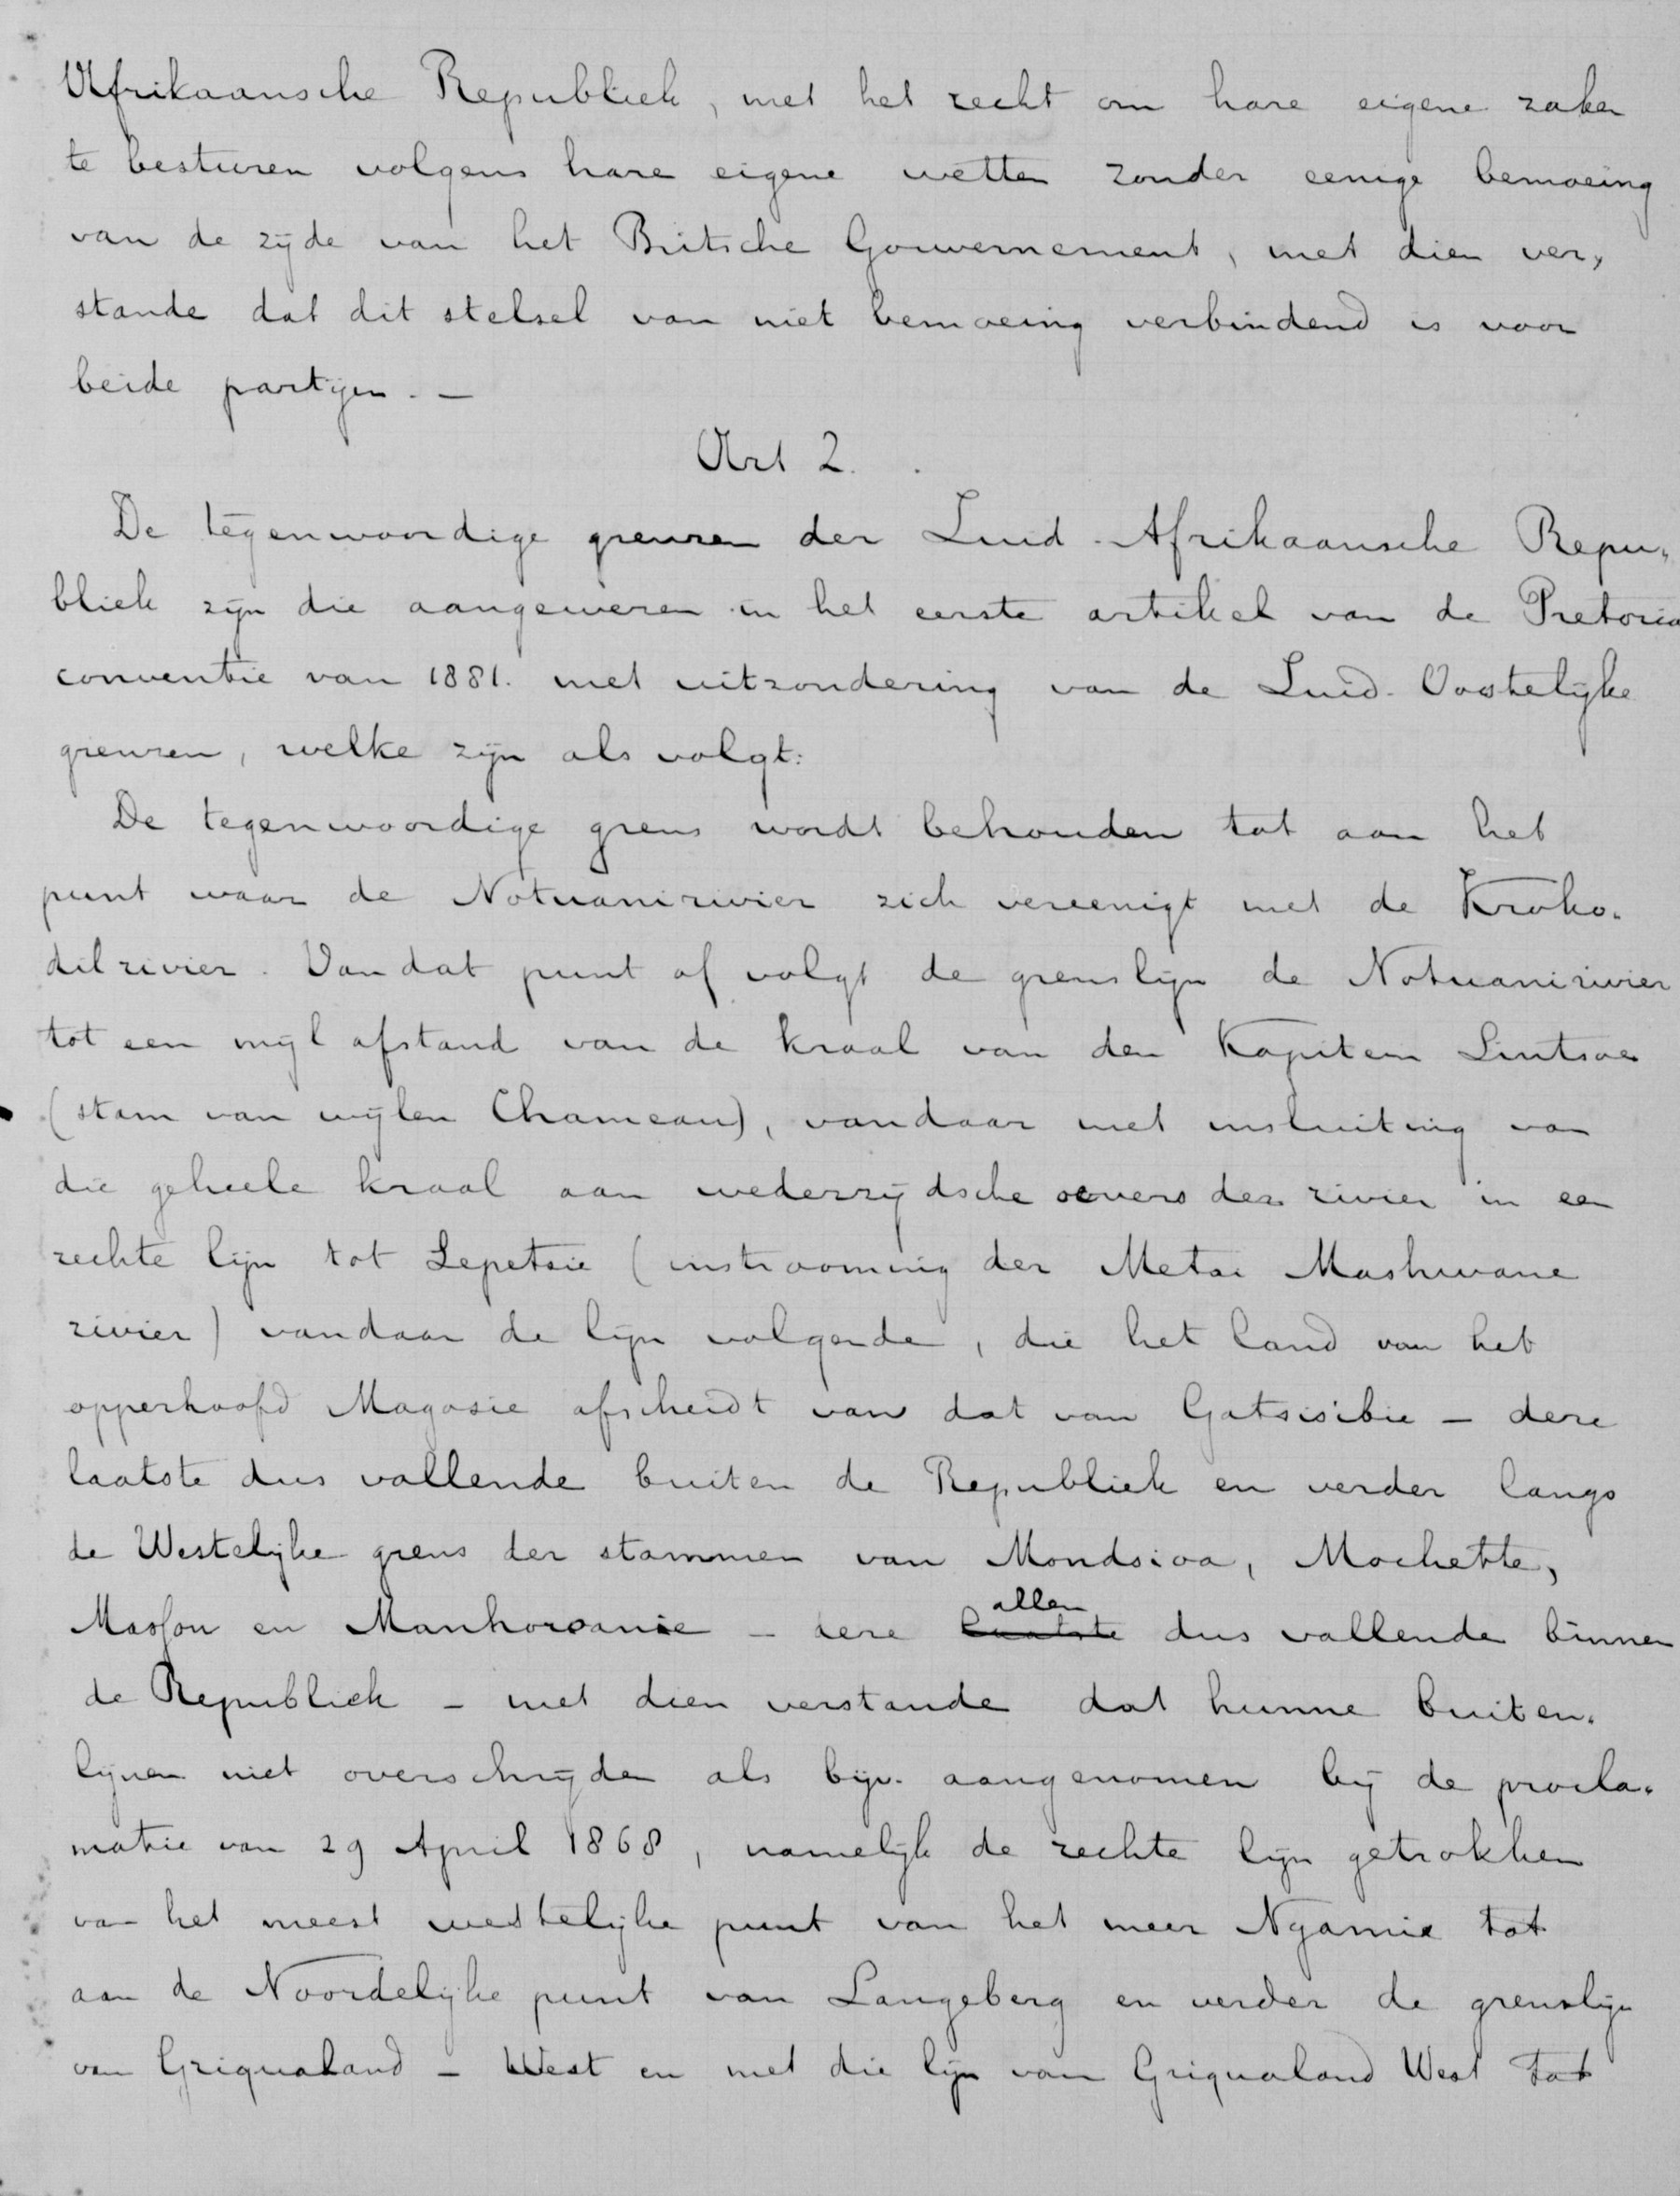 Afrikaansche Republiek, met het recht om hare eigene zaken
te besturen volgens hare eigene wetten zonder eenige bemoeing
van de zijde van het Britsche Gouvernement, met dien ver,
stande dat dit stelsel van niet bemoeing verbindend is voor
beide partijen. —
Art 2.
De tegenwoordige grenzen der Zuid-Afrikaansche Repu,
bliek zijn die aangewezen in het eerste artikel van de Pretoria
conventie van 1881. met uitzondering van de Zuid-Oostelijke
grenzen, welke zijn als volgt:
De tegenwoordige grens wordt behouden tot aan het
punt waar de Notuanirivier zich vereenigt met de Kroko.
dilrivier. Van dat punt af volgt de grenslijn de Notuanirivier
tot een mijl afstand van de kraal van den Kapitein Lintsoe
(stam van wijlen Chameau), vandaar met insluiting van
die geheele kraal aan wederzijdsche oevers der rivier in een
rechte lijn tot Lepetsie (instrooming der Metsi Mashwane
rivier) vandaar de lijn volgende, die het land van het
opperhoofd Magosie afscheidt van dat van Gatsisibie – deze
laatste dus vallende buiten de Republiek en verder langs
de Westelijke grens der stammen van Mondsioa, Mochette,
Massou en Mankoroanie – deze allen laatste dus vallende binnen
de Republiek – met dien verstande dat hunne buiten.
lijnen niet overschrijden als bijv. aangenomen bij de procla.
matie van 29 April 1868, namelijk de rechte lijn getrokken
van het meest westelijke punt van het meer Ngamie tot
aan de Noordelijke punt van Langeberg en verder de grenslijn
van Griqualand – West en met die lijn van Griqualand West tot